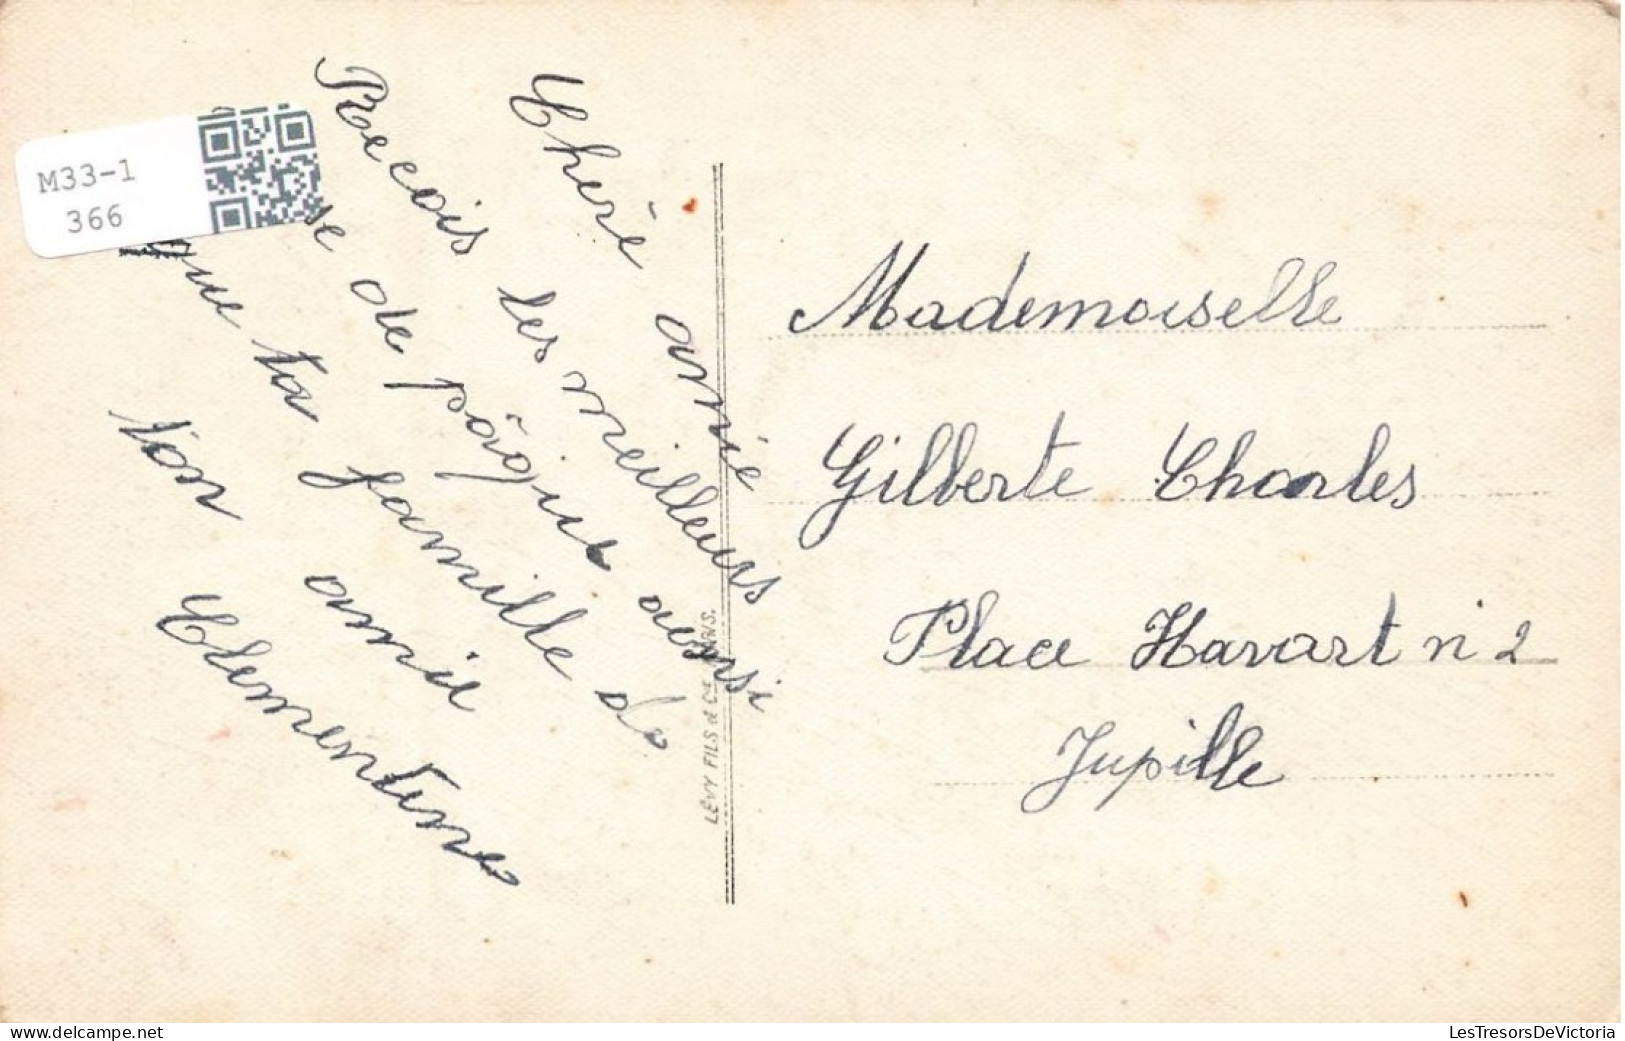 M33-1
366
Cherè amie
Recois les meilleurs
se de pâque aussi
que ta famille de
ton amie
Clementine
LÉVY FILS & Cie
Mademoiselle
Gilberte Charles
Place Havart n 2
Jupille
delcampe.net
LesTresorsDeVictoria